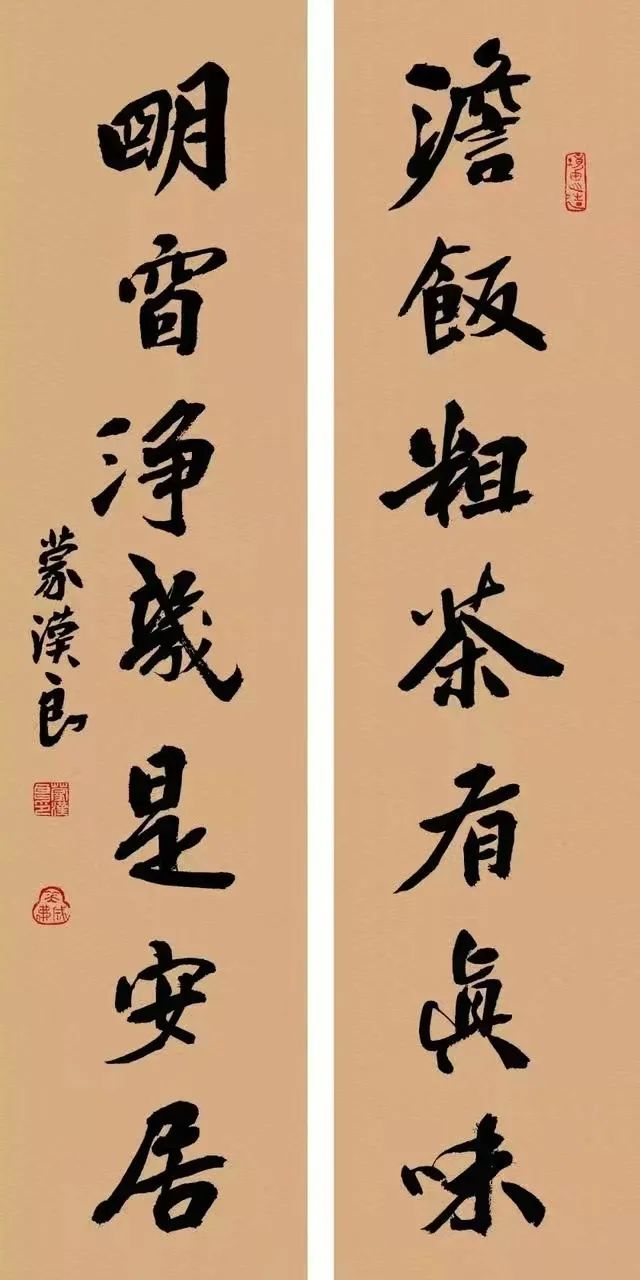 澹飯粗茶有眞味
明窗淨幾是安居
蒙漢良